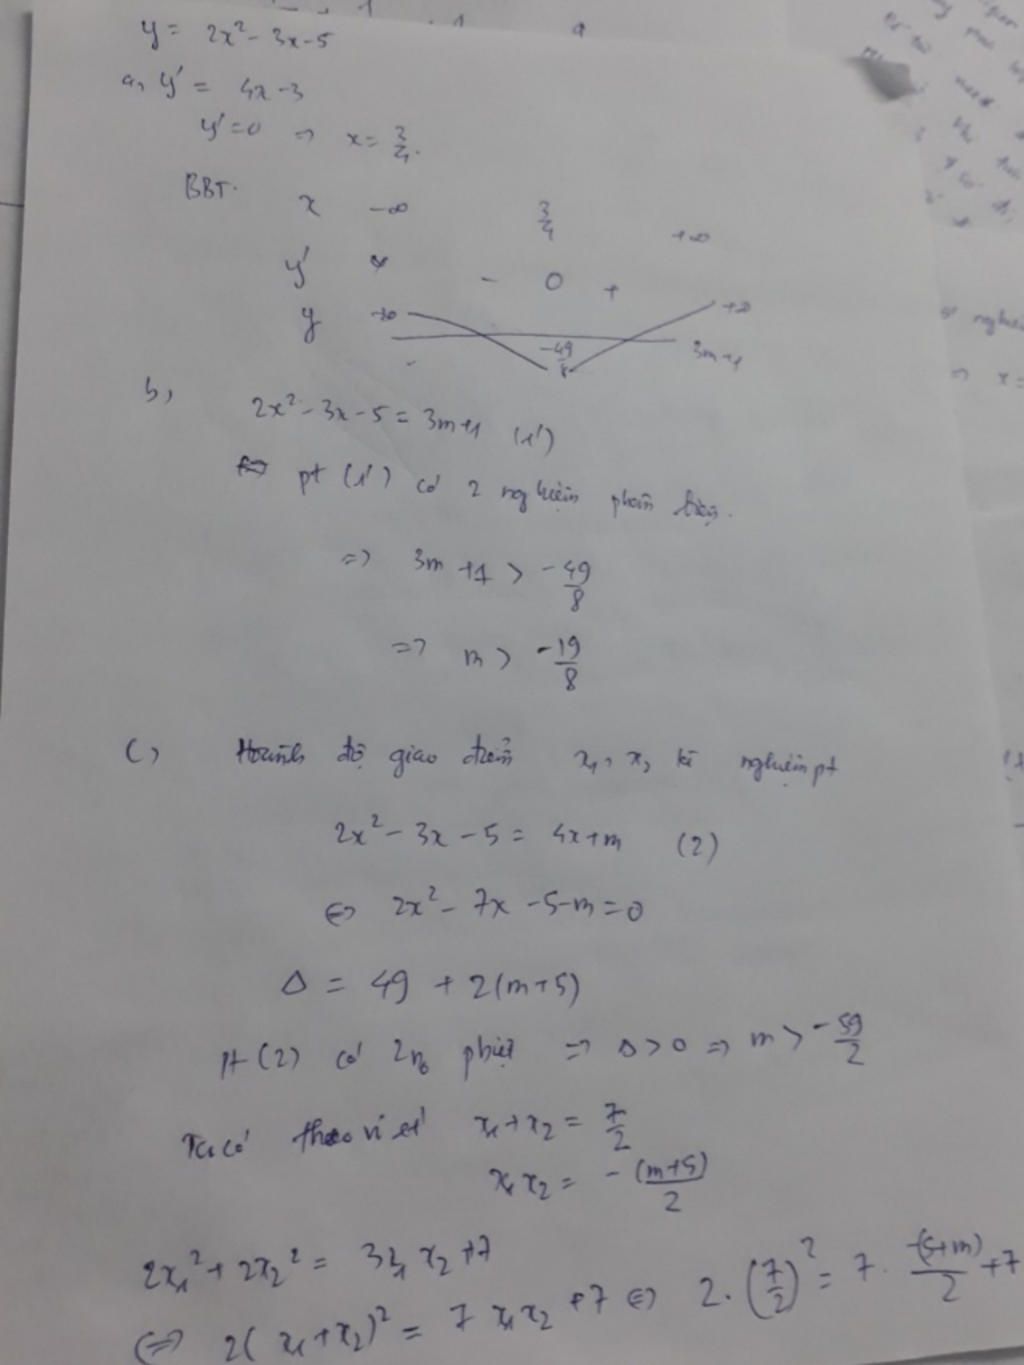 y = 2x² - 3x - 5
a, y' = 4x - 3
y' = 0 => x = 3/4.
BBT.
x -∞ 3/4 +∞
y' - 0 +
y +∞ -49/8 +∞
3m+1
b, 2x² - 3x - 5 = 3m+1 (1')
pt (1') có 2 nghiệm phân biệt.
=> 3m + 1 > -49/8
=> m > -19/8
c, Hoành độ giao điểm x₁, x₂ là nghiệm pt
2x² - 3x - 5 = 4x + m (2)
<=> 2x² - 7x - 5 - m = 0
Δ = 49 + 2(m+5)
pt (2) có 2n₀ pbiệt => Δ > 0 => m > -59/2
Ta có theo vi ét x₁ + x₂ = 7/2
x₁x₂ = -(m+5)/2
2x₁² + 2x₂² = 3x₁x₂ + 7
<=> 2(x₁+x₂)² = 7x₁x₂ + 7 <=> 2.(7/2)² = 7. -(5+m)/2 + 7